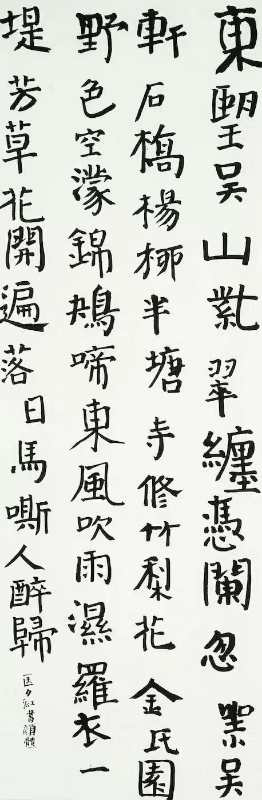 東朢吳山紫翠纏憑闌忽吳
軒石橋楊柳半塘寺修竹梨花金氏園
野色空濛錦鳩啼東風吹雨濕羅衣一
堤芳草花開遍落日馬嘶人醉歸